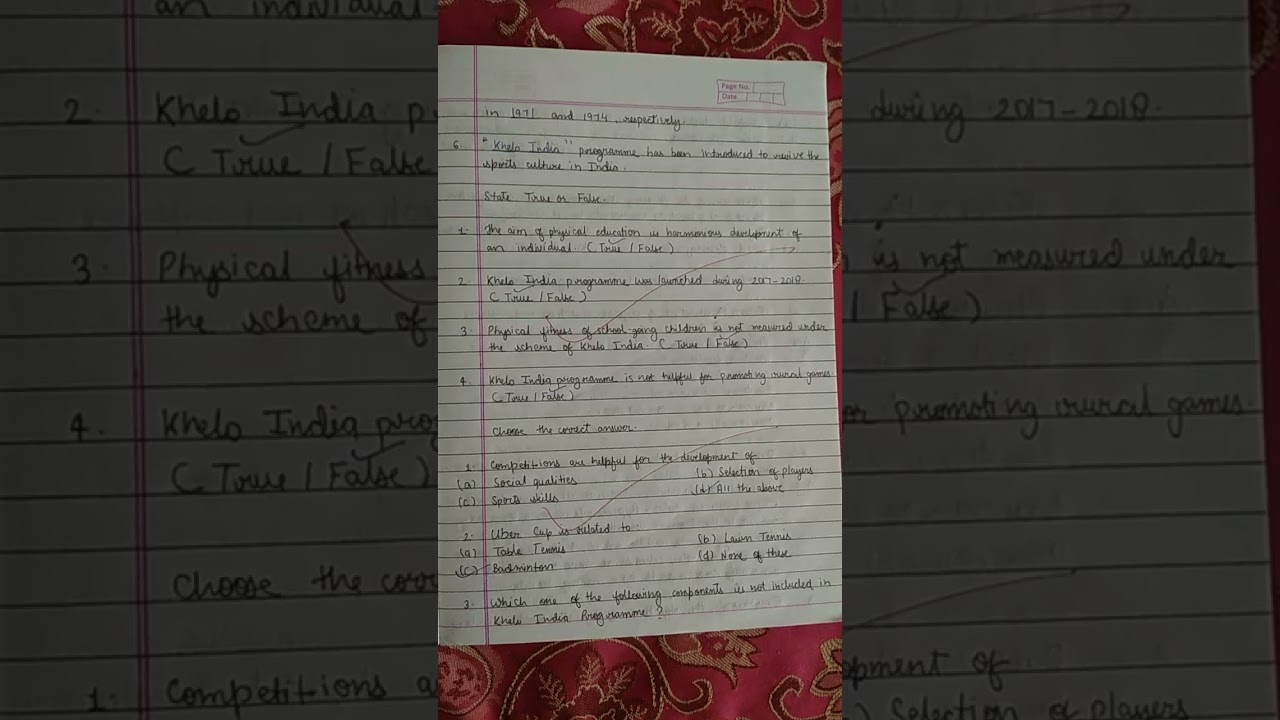 Page No.
Date
in 1971 and 1974, respectively.
6. "Khelo India" programme has been introduced to revive the
sports culture in India.
State True or False.
1. The aim of physical education is harmonious development of
an individual. (True / False)
2. Khelo India programme was launched during 2017-2018.
(True / False)
3. Physical fitness of school-going children is not measured under
the scheme of Khelo India. (True / False)
4. Khelo India programme is not helpful for promoting rural games.
(True / False)
Choose the correct answer.
1. Competitions are helpful for the development of
(a) Social qualities (b) Selection of players
(c) Sports skills (d) All the above
2. Uber Cup is related to:
(a) Table Tennis (b) Lawn Tennis
(c) Badminton (d) None of these
3. Which one of the following components is not included in
Khelo India Programme?